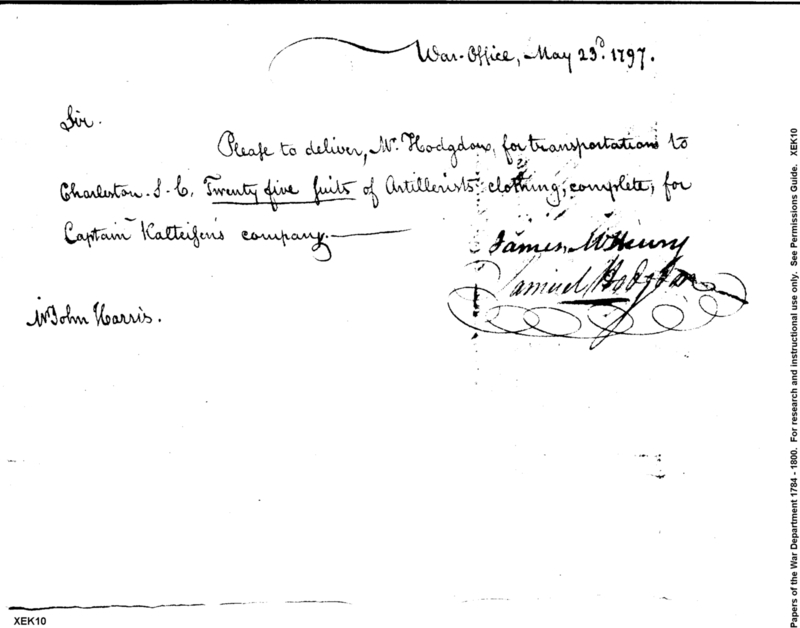 War-Office, May 23d. 1797.
Sir.
Please to deliver, Mr. Hodgdon, for transportation to
Charleston. S. C. Twenty five suits of Artillerists clothing, complete, for
Captain Kalteisen's company.
James McHenry
Samuel Hodgdon
Mr John Harris.
Papers of the War Department 1784 - 1800. For research and instructional use only. See Permissions Guide. XEK10
XEK10